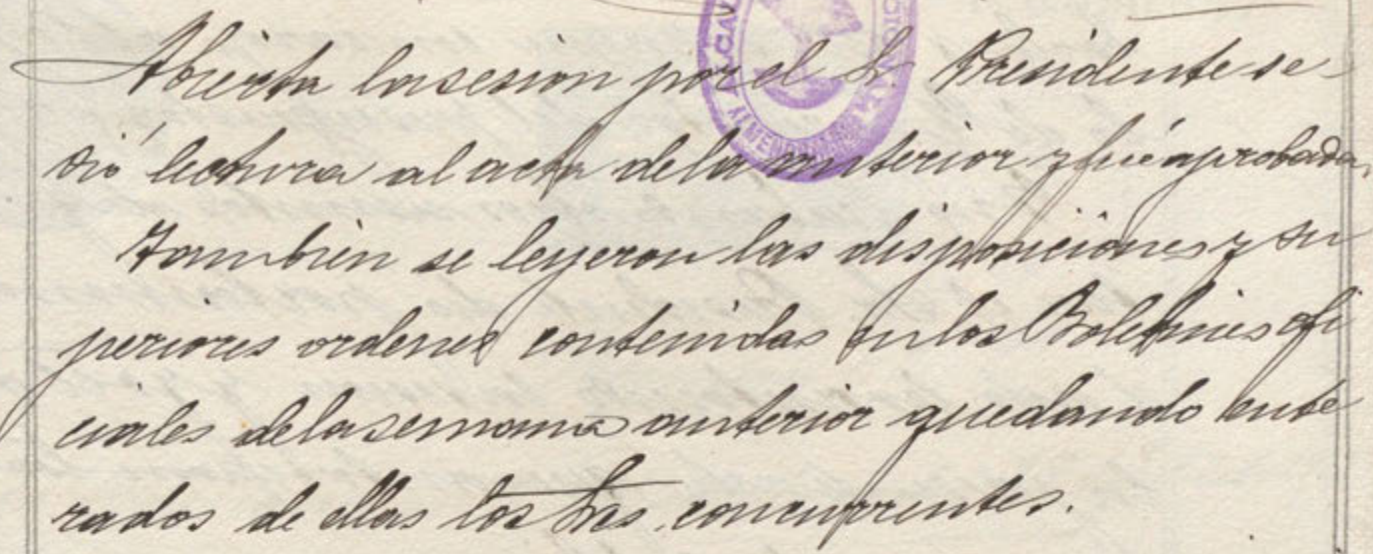 Abierta la sesion por el Sr. Presidente se
dió lectura al acta de la anterior y fué aprobada.
Tambien se leyeron las disposiciones y su
periores ordenes contenidas en los Boletines ofi
ciales de la semana anterior quedando ente
rados de ellas los Sres. concurrentes.